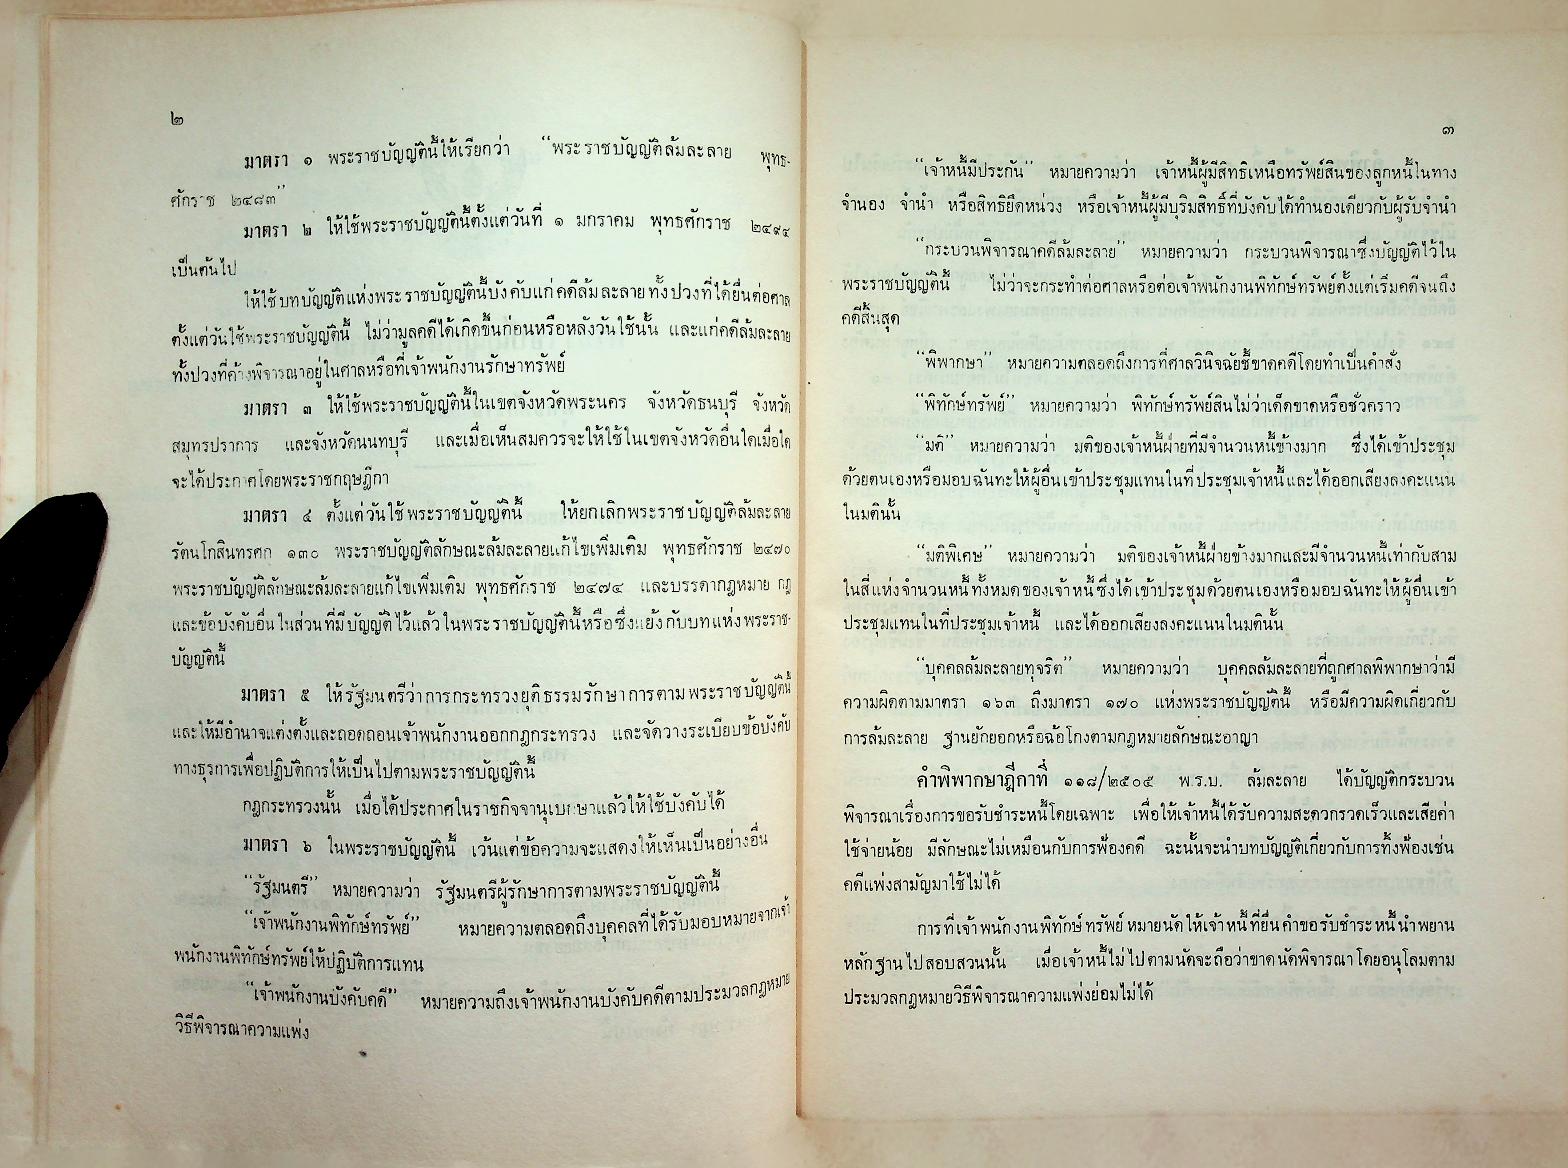 ๒
มาตรา ๑ พระราชบัญญัตินี้ให้เรียกว่า “พระราชบัญญัติล้มละลาย พุทธ-
ศักราช ๒๔๘๓”
มาตรา ๒ ให้ใช้พระราชบัญญัตินี้ตั้งแต่วันที่ ๑ มกราคม พุทธศักราช ๒๔๘๔
เป็นต้นไป
ให้ใช้บทบัญญัติแห่งพระราชบัญญัตินี้บังคับแก่คดีล้มละลายทั้งปวงที่ได้ยื่นต่อศาล
ตั้งแต่วันใช้พระราชบัญญัตินี้ ไม่ว่ามูลคดีได้เกิดขึ้นก่อนหรือหลังวันใช้นั้น และแก่คดีล้มละลาย
ทั้งปวงที่ค้างพิจารณาอยู่ในศาลหรือที่เจ้าพนักงานรักษาทรัพย์
มาตรา ๓ ให้ใช้พระราชบัญญัตินี้ในเขตจังหวัดพระนคร จังหวัดธนบุรี จังหวัด
สมุทรปราการ และจังหวัดนนทบุรี และเมื่อเห็นสมควรจะให้ใช้ในเขตจังหวัดอื่นใดเมื่อใด
จะได้ประกาศโดยพระราชกฤษฎีกา
มาตรา ๔ ตั้งแต่วันใช้พระราชบัญญัตินี้ ให้ยกเลิกพระราชบัญญัติล้มละลาย
รัตนโกสินทรศก ๑๓๐ พระราชบัญญัติลักษณะล้มละลายแก้ไขเพิ่มเติม พุทธศักราช ๒๔๗๐
พระราชบัญญัติลักษณะล้มละลายแก้ไขเพิ่มเติม พุทธศักราช ๒๔๗๔ และบรรดากฎหมาย กฎ
และข้อบังคับอื่นในส่วนที่มีบัญญัติไว้แล้วในพระราชบัญญัตินี้หรือซึ่งแย้งกับบทแห่งพระราช-
บัญญัตินี้
มาตรา ๕ ให้รัฐมนตรีว่าการกระทรวงยุติธรรมรักษาการตามพระราชบัญญัตินี้
และให้มีอำนาจแต่งตั้งและถอดถอนเจ้าพนักงานออกกฎกระทรวง และจัดวางระเบียบข้อบังคับ
ทางธุรการเพื่อปฏิบัติการให้เป็นไปตามพระราชบัญญัตินี้
กฎกระทรวงนั้น เมื่อได้ประกาศในราชกิจจานุเบกษาแล้วให้ใช้บังคับได้
มาตรา ๖ ในพระราชบัญญัตินี้ เว้นแต่ข้อความจะแสดงให้เห็นเป็นอย่างอื่น
“รัฐมนตรี” หมายความว่า รัฐมนตรีผู้รักษาการตามพระราชบัญญัตินี้
“เจ้าพนักงานพิทักษ์ทรัพย์” หมายความตลอดถึงบุคคลที่ได้รับมอบหมายจากเจ้า
พนักงานพิทักษ์ทรัพย์ให้ปฏิบัติการแทน
“เจ้าพนักงานบังคับคดี” หมายความถึงเจ้าพนักงานบังคับคดีตามประมวลกฎหมาย
วิธีพิจารณาความแพ่ง
๓
“เจ้าหนี้มีประกัน” หมายความว่า เจ้าหนี้ผู้มีสิทธิเหนือทรัพย์สินของลูกหนี้ในทาง
จำนอง จำนำ หรือสิทธิยึดหน่วง หรือเจ้าหนี้ผู้มีบุริมสิทธิ์ที่บังคับได้ทำนองเดียวกับผู้รับจำนำ
“กระบวนพิจารณาคดีล้มละลาย” หมายความว่า กระบวนพิจารณาซึ่งบัญญัติไว้ใน
พระราชบัญญัตินี้ ไม่ว่าจะกระทำต่อศาลหรือต่อเจ้าพนักงานพิทักษ์ทรัพย์ตั้งแต่เริ่มคดีจนถึง
คดีสิ้นสุด
“พิพากษา” หมายความตลอดถึงการที่ศาลวินิจฉัยชี้ขาดคดีโดยทำเป็นคำสั่ง
“พิทักษ์ทรัพย์” หมายความว่า พิทักษ์ทรัพย์สินไม่ว่าเด็ดขาดหรือชั่วคราว
“มติ” หมายความว่า มติของเจ้าหนี้ฝ่ายที่มีจำนวนหนี้ข้างมาก ซึ่งได้เข้าประชุม
ด้วยตนเองหรือมอบฉันทะให้ผู้อื่นเข้าประชุมแทนในที่ประชุมเจ้าหนี้และได้ออกเสียงลงคะแนน
ในมตินั้น
“มติพิเศษ” หมายความว่า มติของเจ้าหนี้ฝ่ายข้างมากและมีจำนวนหนี้เท่ากับสาม
ในสี่แห่งจำนวนหนี้ทั้งหมดของเจ้าหนี้ซึ่งได้เข้าประชุมด้วยตนเองหรือมอบฉันทะให้ผู้อื่นเข้า
ประชุมแทนในที่ประชุมเจ้าหนี้ และได้ออกเสียงลงคะแนนในมตินั้น
“บุคคลล้มละลายทุจริต” หมายความว่า บุคคลล้มละลายที่ถูกศาลพิพากษาว่ามี
ความผิดตามมาตรา ๑๖๓ ถึงมาตรา ๑๗๐ แห่งพระราชบัญญัตินี้ หรือมีความผิดเกี่ยวกับ
การล้มละลาย ฐานยักยอกหรือฉ้อโกงตามกฎหมายลักษณะอาญา
คำพิพากษาฎีกาที่ ๑๑๘/๒๕๐๕ พ.ร.บ. ล้มละลาย ได้บัญญัติกระบวน
พิจารณาเรื่องการขอรับชำระหนี้โดยเฉพาะ เพื่อให้เจ้าหนี้ได้รับความสะดวกรวดเร็วและเสียค่า
ใช้จ่ายน้อย มีลักษณะไม่เหมือนกับการฟ้องคดี ฉะนั้นจะนำบทบัญญัติเกี่ยวกับการทิ้งฟ้องเช่น
คดีแพ่งสามัญมาใช้ไม่ได้
การที่เจ้าพนักงานพิทักษ์ทรัพย์หมายนัดให้เจ้าหนี้ที่ยื่นคำขอรับชำระหนี้นำพยาน
หลักฐานไปสอบสวนนั้น เมื่อเจ้าหนี้ไม่ไปตามนัดจะถือว่าขาดนัดพิจารณาโดยอนุโลมตาม
ประมวลกฎหมายวิธีพิจารณาความแพ่งย่อมไม่ได้